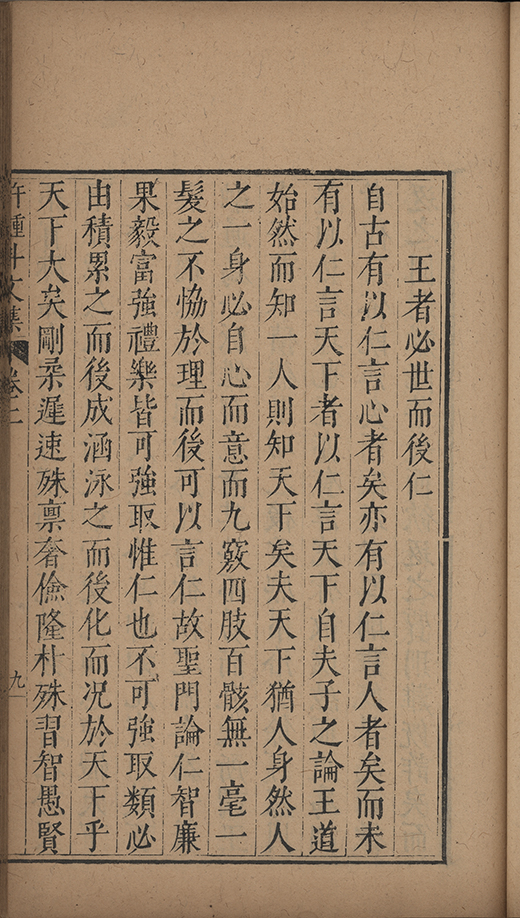 王者必世而後仁
自古有以仁言心者矣亦有以仁言人者矣而未
有以仁言天下者以仁言天下自夫子之論王道
始然而知一人則知天下矣夫天下猶人身然人
之一身必自心而意而九竅四肢百骸無一毫一
髮之不恊於理而後可以言仁故聖門論仁智廉
果毅富強禮樂皆可強取惟仁也不可強取類必
由積累之而後成涵泳之而後化而况於天下乎
天下大矣剛柔遲速殊禀奢儉隆朴殊習智愚賢
許鍾斗文集 卷二 九